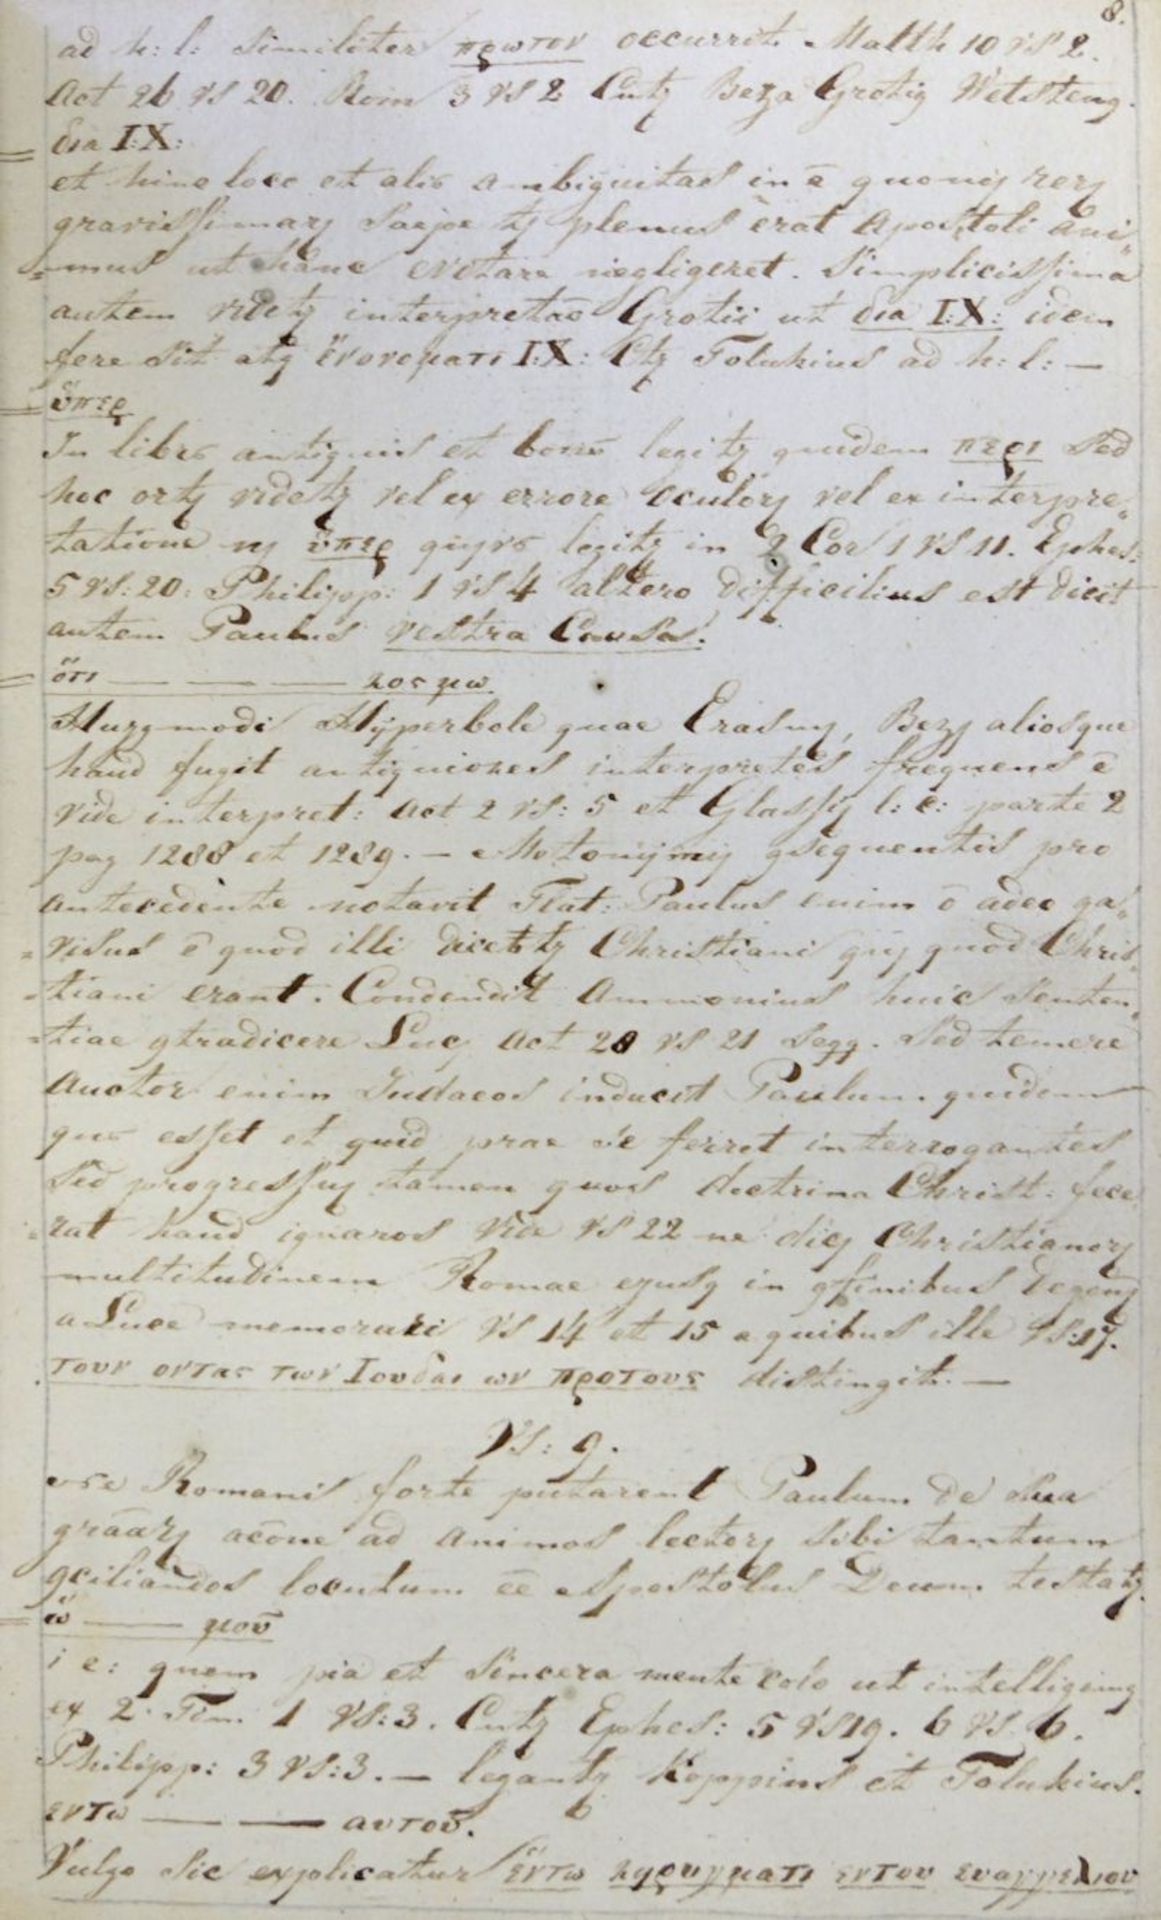 8.
ad h: l: similiter πρωτον occurrit Matth 10 vs 2.
Act 26 vs 20. Rom 3 vs 2 Beza Grotiq Wetsteng.
δια I:X:
et hinc loco et alio ambiguitas in ē quoniq rerq
gravissimarq saepe tq plenus erat Apostoli ani„
„mus ut hanc evitare negligeret. Simplicissima
autem videtq interpretāo Grotii ut δια I:X: idem
fere sit atq ἐνονοματι I:X: Tolukius ad h: l: —
ὑπερ
In libris antiquis et bonis legitq quidem περι sed
hoc ortq videtq vel ex errore oculorq vel ex interpre„
tatione ὑπερ legitq in 2 Cor 1 vs 11. Ephes:
5 vs: 20: Philipp: 1 vs 4 altero difficilius est dicit
autem Paulus vestra Causa!
ὁτι — — — κοσμω.
Hujqmodi Hÿperbole quae Erasmq, Bezq aliosque
haud fugit antiquiores interpretes frequens ē
vide interpret: Act 2 vs: 5 et Glassiq l: c: parte 2
pag 1288 et 1289. — Metonÿmiq qsequentis pro
antecedente notavit Flat: Paulus enim ō adeo ga„
„visus ē quod illi dicetq Christiani quod Chris„
„tiani erant. Condendit Ammonius huic senten„
„tiae qtradicere Luc Act 28 vs 21 seqq. Sed temere
Auctor enim Judaeos inducit Paulum quidem
quis esset et quid prae se ferret interrogantes
sed progressuq tamen quos doctrina Christ: fece„
„rat haud ignaros vide vs 22 ne dicq Christianorq
multitudinem Romae ejusq in qfinibus degenq
a Luca memorari vs 14 et 15 a quibus ille vs: 17.
τουν οντας των Ιουδαι ων προτους distingit. —
Vs: 9.
Romani forte putarent Paulum de sua
grāarq acōne ad animos lectorq sibi tantum
qciliandos locutum ēē Apostolus Deum testatq.
ὡ — μου
i e: quem pia et sincera mente colo ut intelligimq
ex 2 Tim 1 vs: 3. Ephes: 5 vs 19. 6 vs 6.
Philipp: 3 vs: 3. — legantq Koppius et Tolukius.
εντω — — αυτου.
Vulgo sic explicatur ἐντω κηρυγματι εντου ευαγγελιου